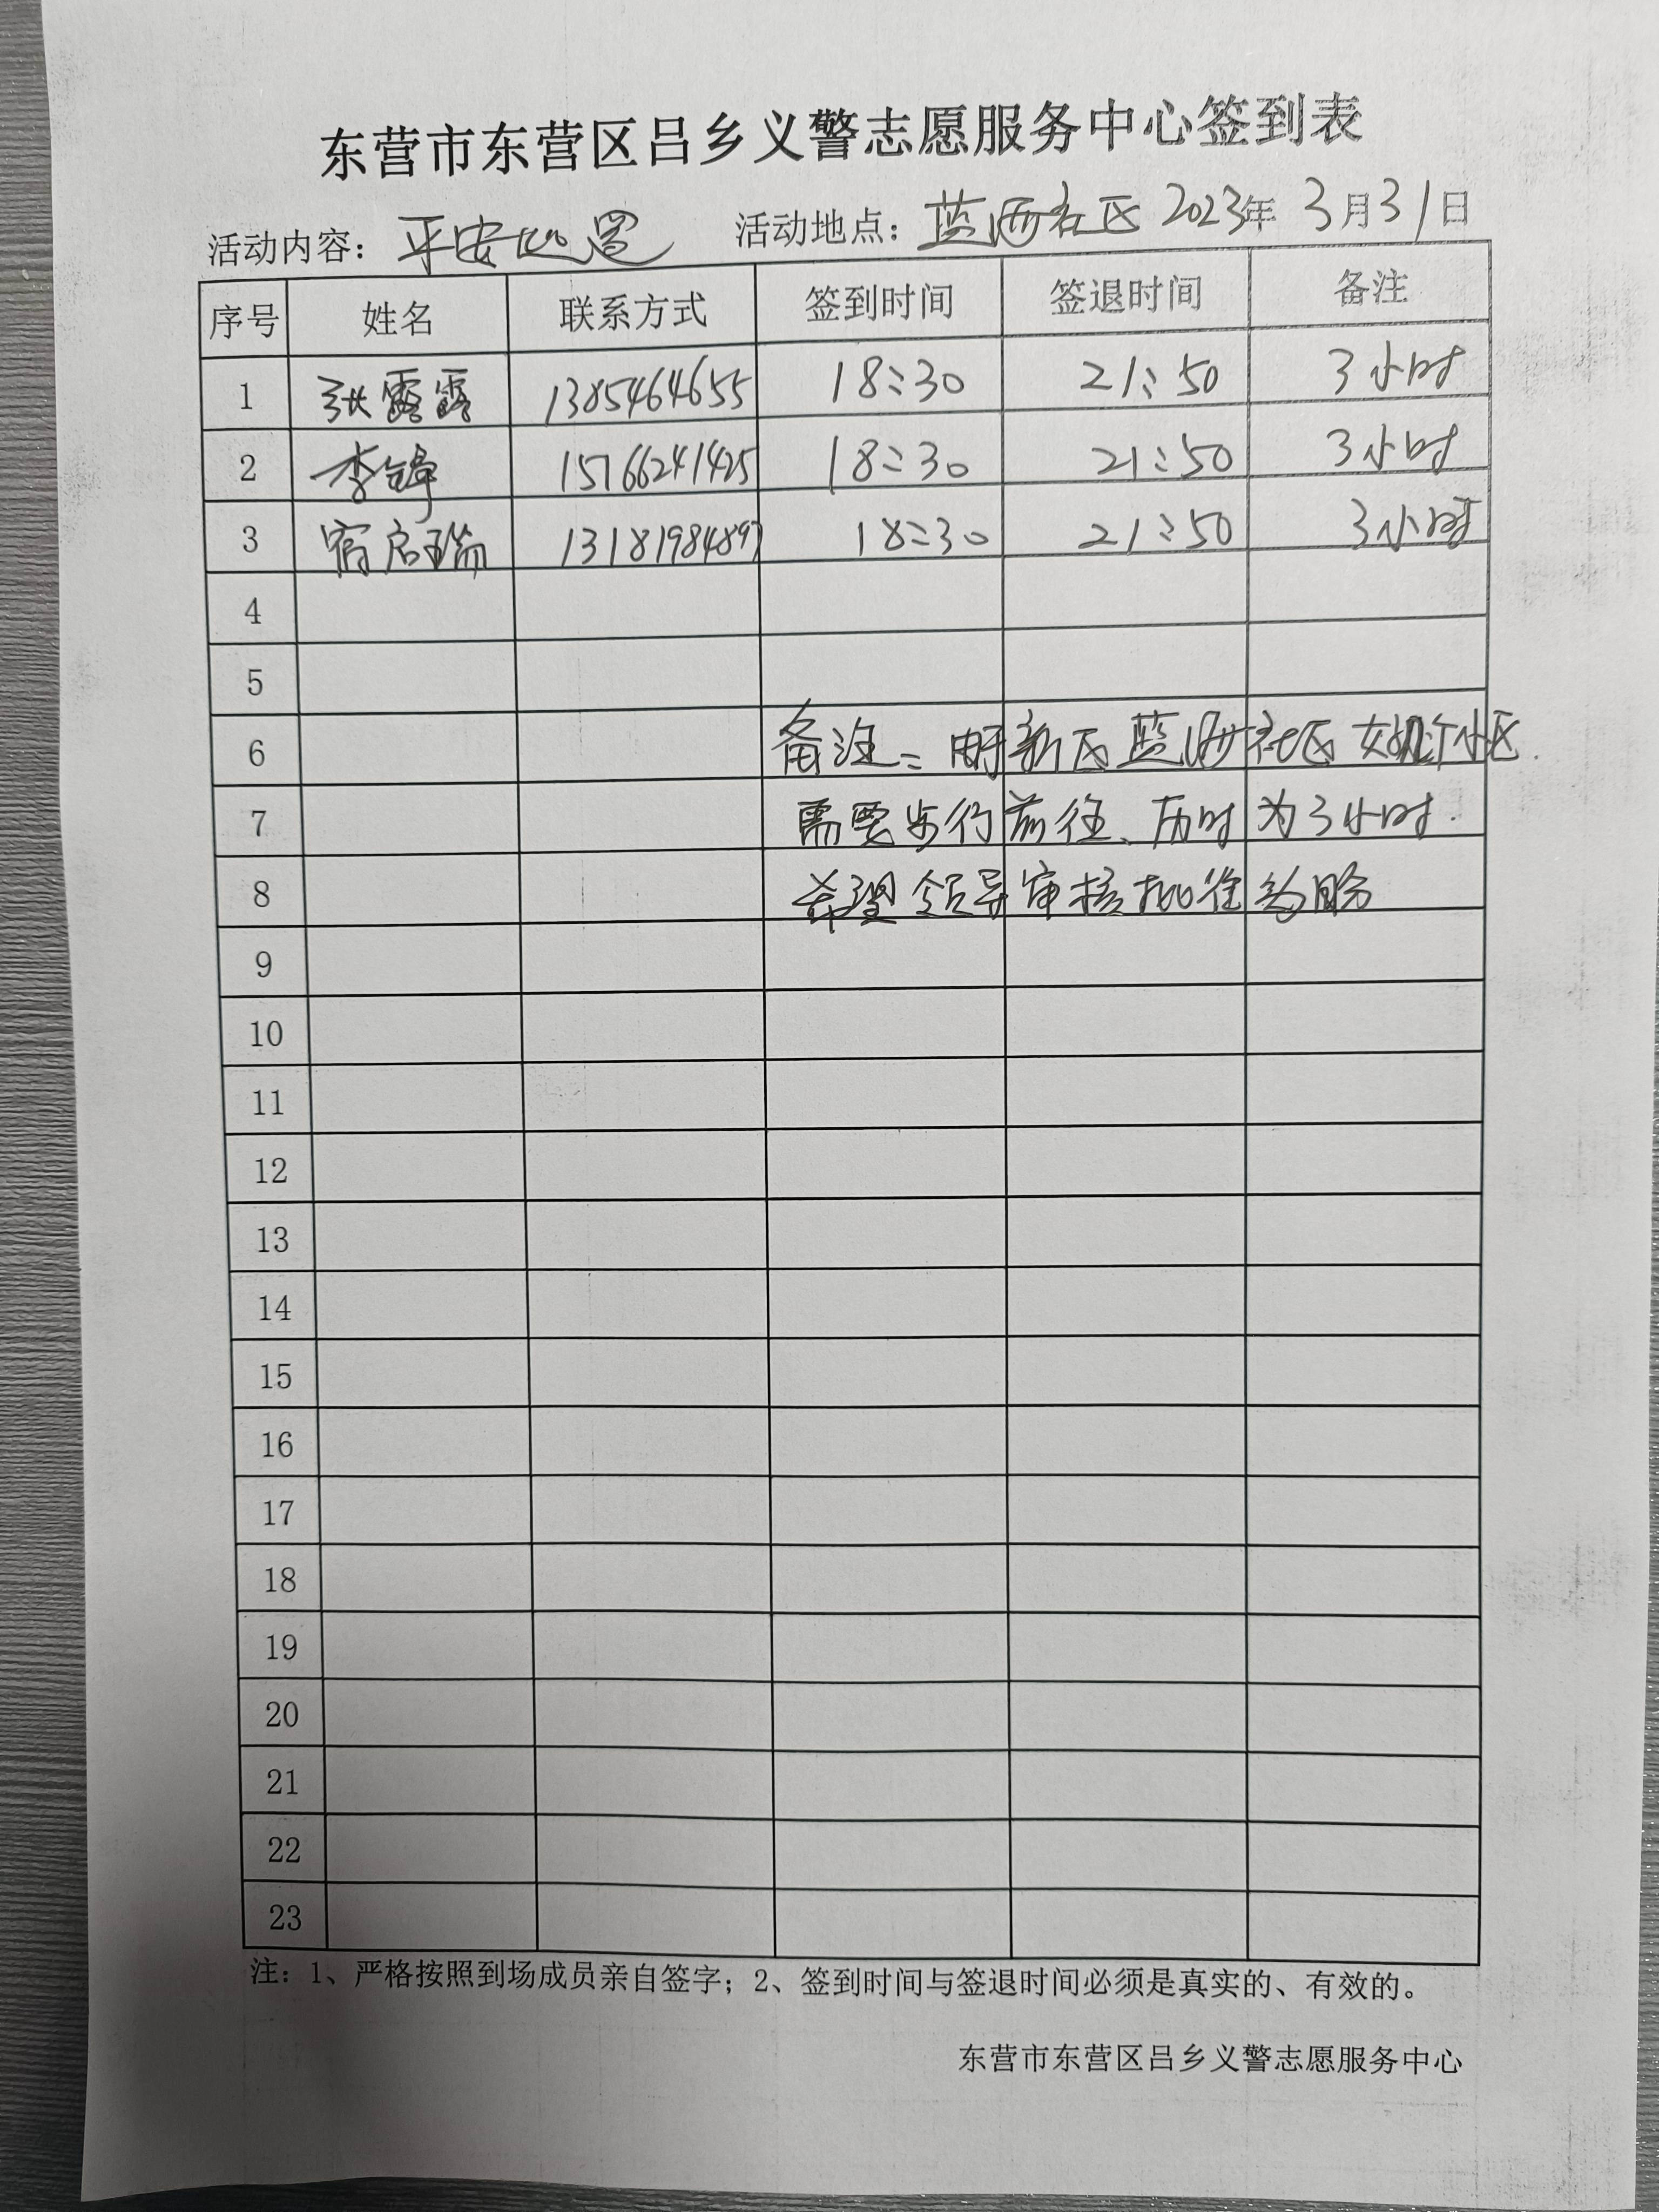 东营市东营区吕乡义警志愿服务中心签到表
活动内容：平安 活动地点：蓝西社区 2023年 3月31日
序号 姓名 联系方式 签到时间 签退时间 备注
1 张露露 1385464655 18:30 21:50 3小时
2 李 15166241425 18:30 21:50 3小时
3 宿启瑞 13181984897 18:30 21:50 3小时
4
5
6 备注：由于新区蓝西社区 小区.
7 需要步行前往、历时为3小时.
8 希望领导审核批准为盼
9
10
11
12
13
14
15
16
17
18
19
20
21
22
23
注：1、严格按照到场成员亲自签字；2、签到时间与签退时间必须是真实的、有效的。
东营市东营区吕乡义警志愿服务中心